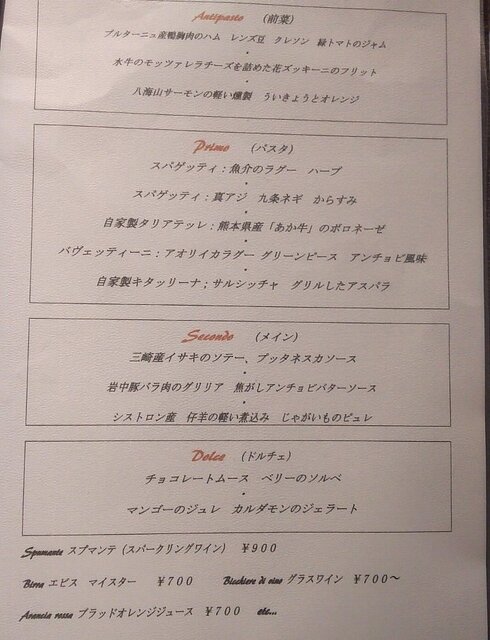 Antipasto （前菜）
ブルターニュ産鴨胸肉のハム　レンズ豆　クレソン　緑トマトのジャム
・
水牛のモッツァレラチーズを詰めた花ズッキーニのフリット
・
八海山サーモンの軽い燻製　ういきょうとオレンジ
Primo （パスタ）
スパゲッティ：魚介のラグー　ハーブ
・
スパゲッティ：真アジ　九条ネギ　からすみ
・
自家製タリアテッレ：熊本県産「あか牛」のボロネーゼ
・
バヴェッティーニ：アオリイカラグー グリーンピース　アンチョビ風味
・
自家製キタッリーナ；サルシッチャ　グリルしたアスパラ
Secondo （メイン）
三崎産イサキのソテー、プッタネスカソース
・
岩中豚バラ肉のグリリア　焦がしアンチョビバターソース
・
シストロン産　仔羊の軽い煮込み　じゃがいものピュレ
Dolce （ドルチェ）
チョコレートムース　ベリーのソルベ
・
マンゴーのジュレ　カルダモンのジェラート
Spumante スプマンテ（スパークリングワイン）　￥900
Birra エビス　マイスター　￥700　Bicchiere di vino グラスワイン　￥700～
Arancia rossa ブラッドオレンジジュース　￥700　etc...